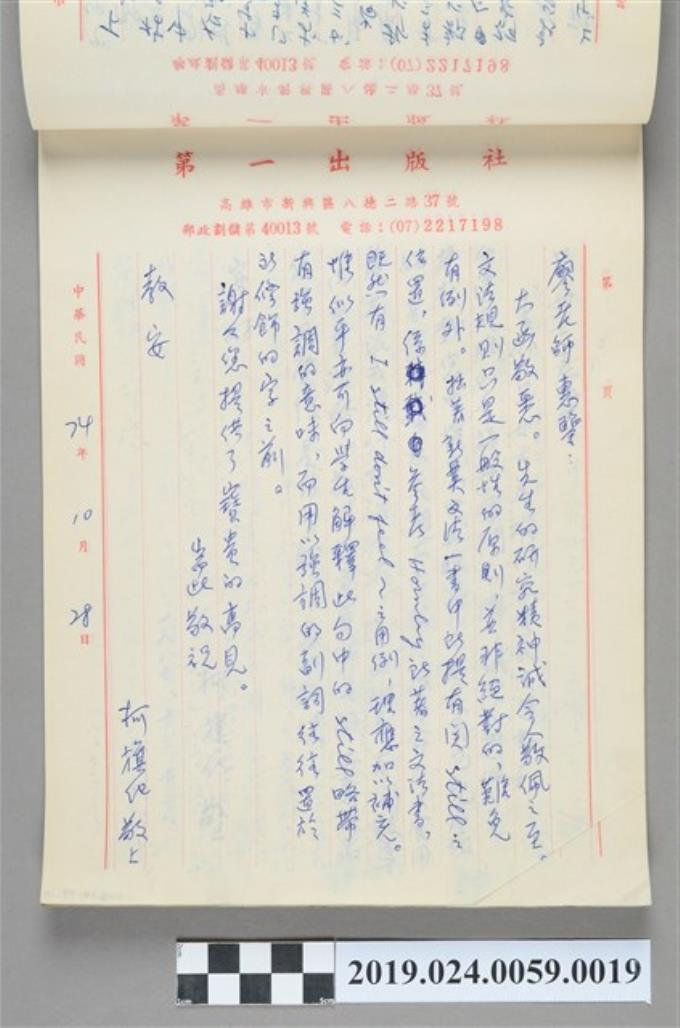 第一出版社
高雄市新興區八德二路37號
郵政劃儲第40013號 電話:(07)2217198
第 頁
廖老師惠鑒:
大函敬悉。先生的研究精神誠令人敬佩之至。
文法規則只是一般性的原則,並非絕對的,難免
有例外。拙著新英文法一書中所提有関still之
位置,係參考Hornby所著之文法書,
既然有I still don't feel~之用例,理應加以補充。
惟似乎亦可向學生解釋此句中的still略帶
有強調的意味,而用以強調的副詞往往置於
所修飾的字之前。
謝々您提供了寶貴的高見。
耑此敬祝
教安
柯旗化敬上
中華民國74年10月28日
2019.024.0059.0019